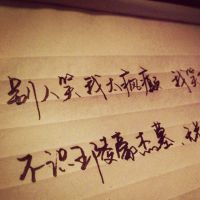 别人笑我太疯癫 我笑
不识王陵豪杰墓,